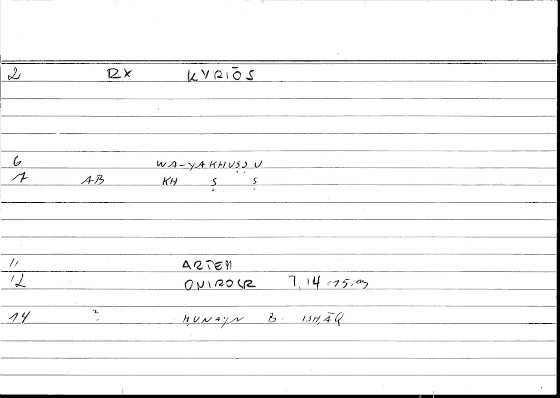 2 RX KYRIŌS
6 WA-YAKHUṢṢU
7 AB KH Ṣ Ṣ
11 ARTEM
12 ONIROCR 7,14
14 2 ḤUNAYN B. ISḤĀQ